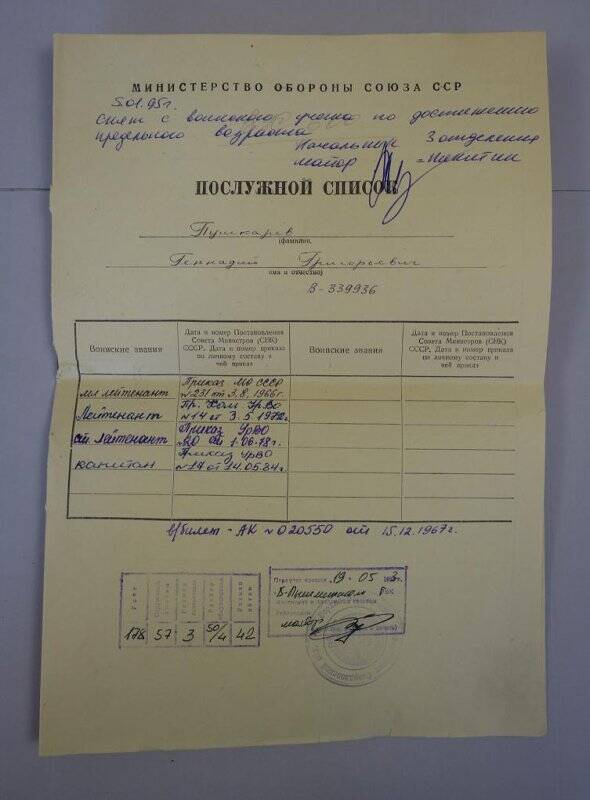 МИНИСТЕРСТВО ОБОРОНЫ СОЮЗА ССР
5.01.95г.
Снят с воинского учета по достижению
предельного возраста
Начальник 3 отделения
майор Никитин
ПОСЛУЖНОЙ СПИСОК
Пушкарев
(фамилия,
Геннадий Григорьевич
имя и отчество)
В-339936
Воинские звания
Дата и номер Постановления Совета Министров (СНК) СССР. Дата и номер приказа по личному составу и чей приказ
Воинские звания
Дата и номер Постановления Совета Министров (СНК) СССР. Дата и номер приказа по личному составу и чей приказ
мл лейтенант Приказ МО СССР №231 от 3.8.1966г.
Лейтенант Пр. Ком УрВО №14 от 3.5.1972г.
ст. лейтенант Приказ УрВО №20 от 1.06.78г.
капитан Приказ УрВО №17 от 14.05.84г.
в/билет - АК №020550 от 15.12.1967г.
Рост
178 57 3 50/4 42
19 - 05
В-Пышминским РВК
майор